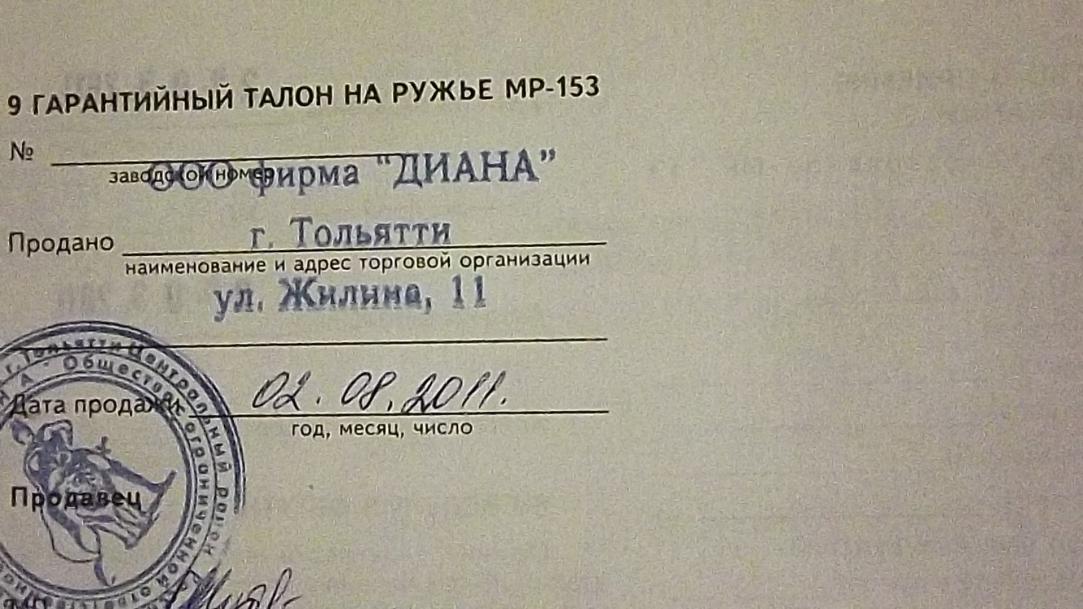 9 ГАРАНТИЙНЫЙ ТАЛОН НА РУЖЬЕ МР-153
№
заводской номер
ООО фирма "ДИАНА"
Продано г. Тольятти
наименование и адрес торговой организации
ул. Жилина, 11
г. Тольятти Центральный район
Общество с ограниченной
Дата продажи 02.08.2011.
год, месяц, число
Продавец